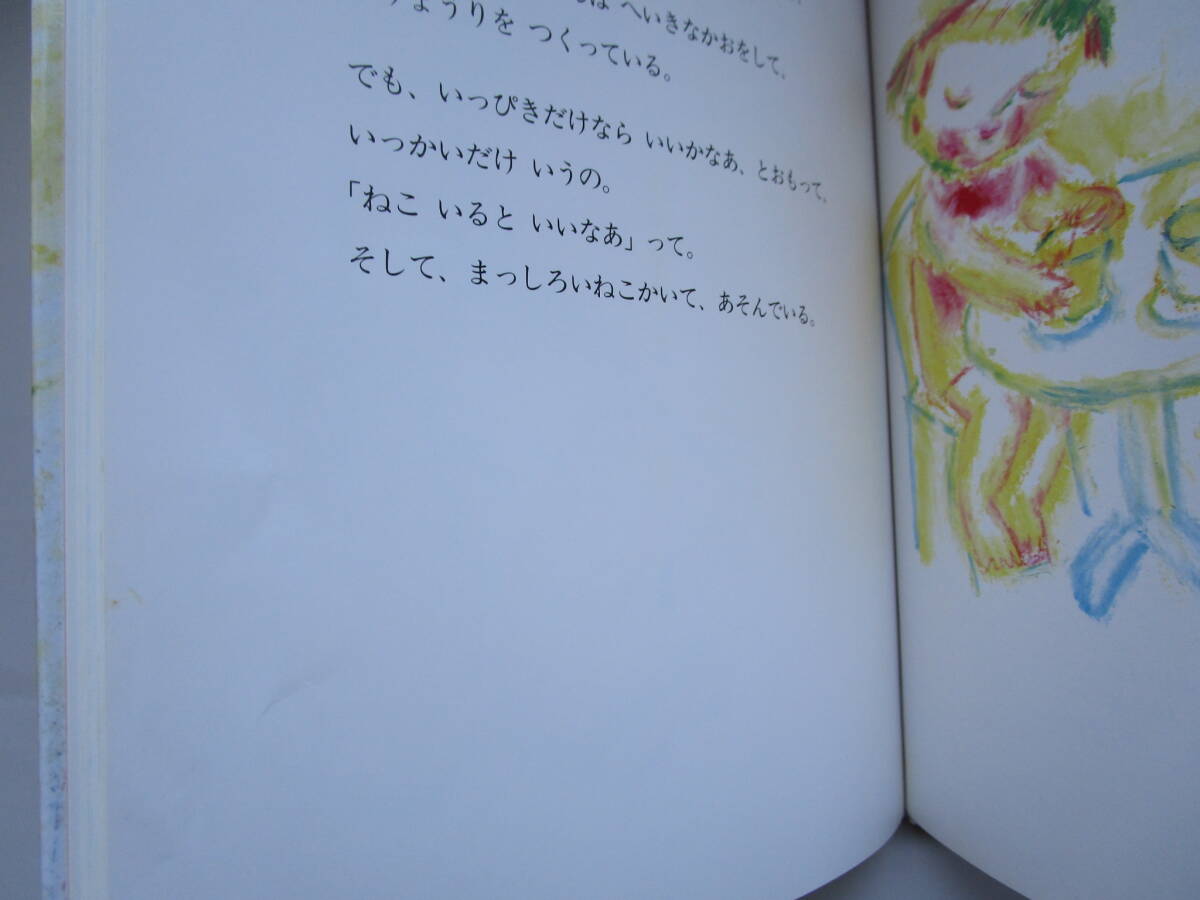 へいきなかおをして、
りょうりを つくっている。
でも、いっぴきだけなら いいかなあ、とおもって、
いっかいだけ いうの。
「ねこ いると いいなあ」って。
そして、まっしろいねこかいて、あそんでいる。